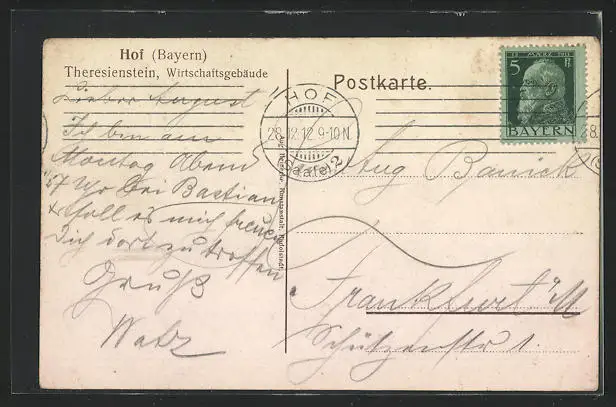 Hof (Bayern)
Theresienstein, Wirtschaftsgebäude
Lieber August!
Ich bin am
Montag Abend
7 Uhr bei Bastian
soll es mich freuen
Dich dort zu treffen
Gruß
Postkarte.
HOF
28.12.12 9-10 N.
(Saale) 2
5 Pf
BAYERN
Aug
Frankfurt a/M
Schützenstr 1.